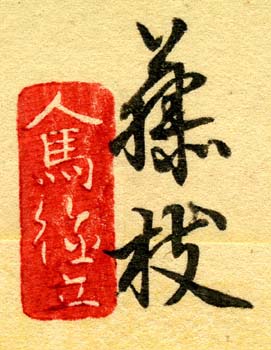 藤枝
人馬継立